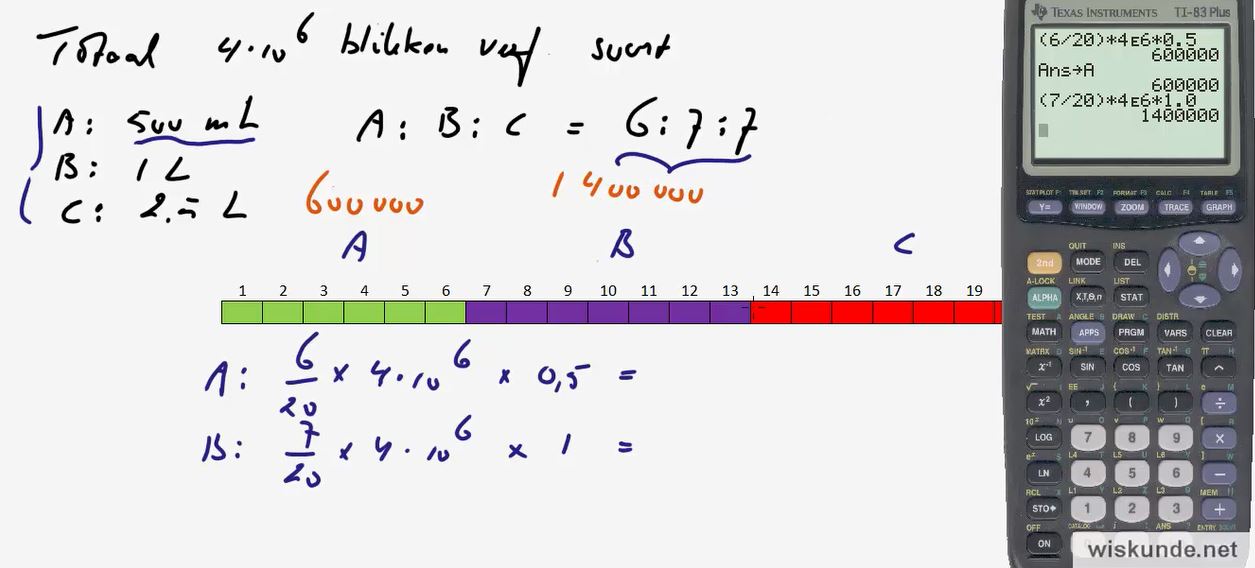 Totaal 4·10^6 blikken verf soort
A: 500 mL
B: 1 L
C: 2.5 L
A : B : C = 6 : 7 : 7
600000
1400000
A B C
1 2 3 4 5 6 7 8 9 10 11 12 13 14 15 16 17 18 19
A: 6/20 × 4·10^6 × 0,5 =
B: 7/20 × 4·10^6 × 1 =
TEXAS INSTRUMENTS TI-83 Plus
(6/20)*4E6*0.5
600000
Ans→A
600000
(7/20)*4E6*1.0
1400000
STAT PLOT F1 TBLSET F2 FORMAT F3 CALC F4 TABLE F5
Y= WINDOW ZOOM TRACE GRAPH
QUIT INS
2nd MODE DEL
A-LOCK LINK LIST
ALPHA X,T,θ,n STAT
TEST A ANGLE B DRAW C DISTR
MATH APPS PRGM VARS CLEAR
MATRX D SIN⁻¹ E COS⁻¹ F TAN⁻¹ G π H
x⁻¹ SIN COS TAN ^
x² , ( ) ÷
LOG 7 8 9 ×
LN 4 5 6 −
RCL X
STO▸ 1 2 3 +
OFF CATALOG ANS ENTRY SOLVE
ON
wiskunde.net